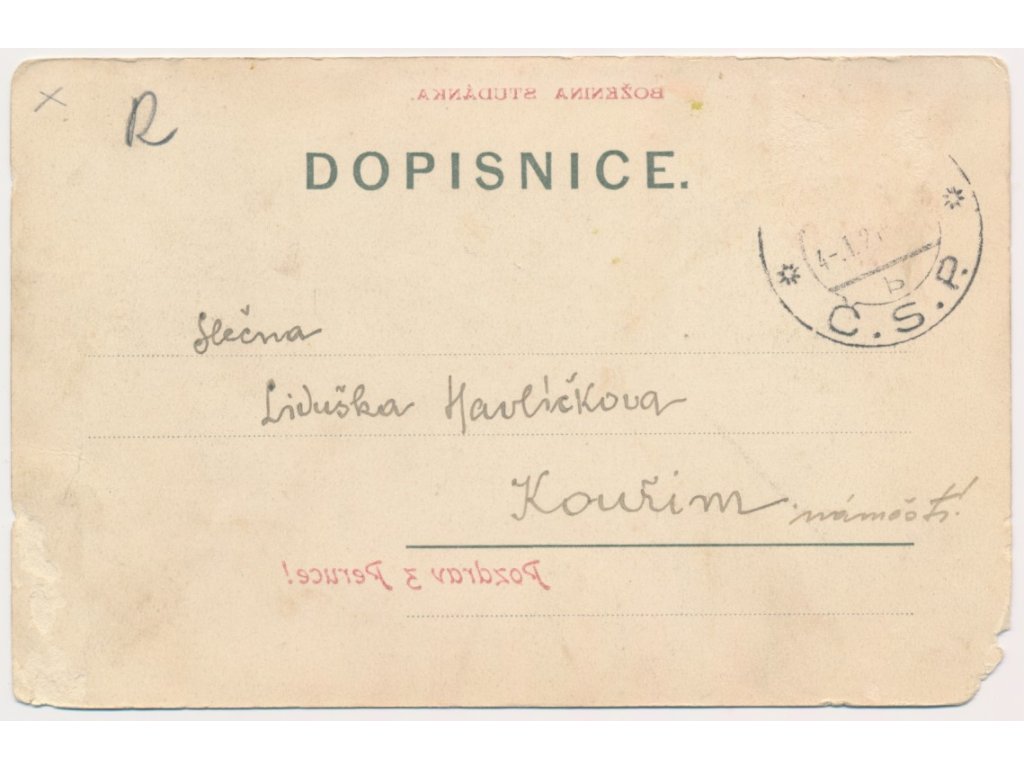 BOŽENINA STUDÁNKA.
R
DOPISNICE.
Č.S.P.
b
Slečna
Liduška Havlíčkova
Kouřim náměstí.
Pozdrav z Peruce!